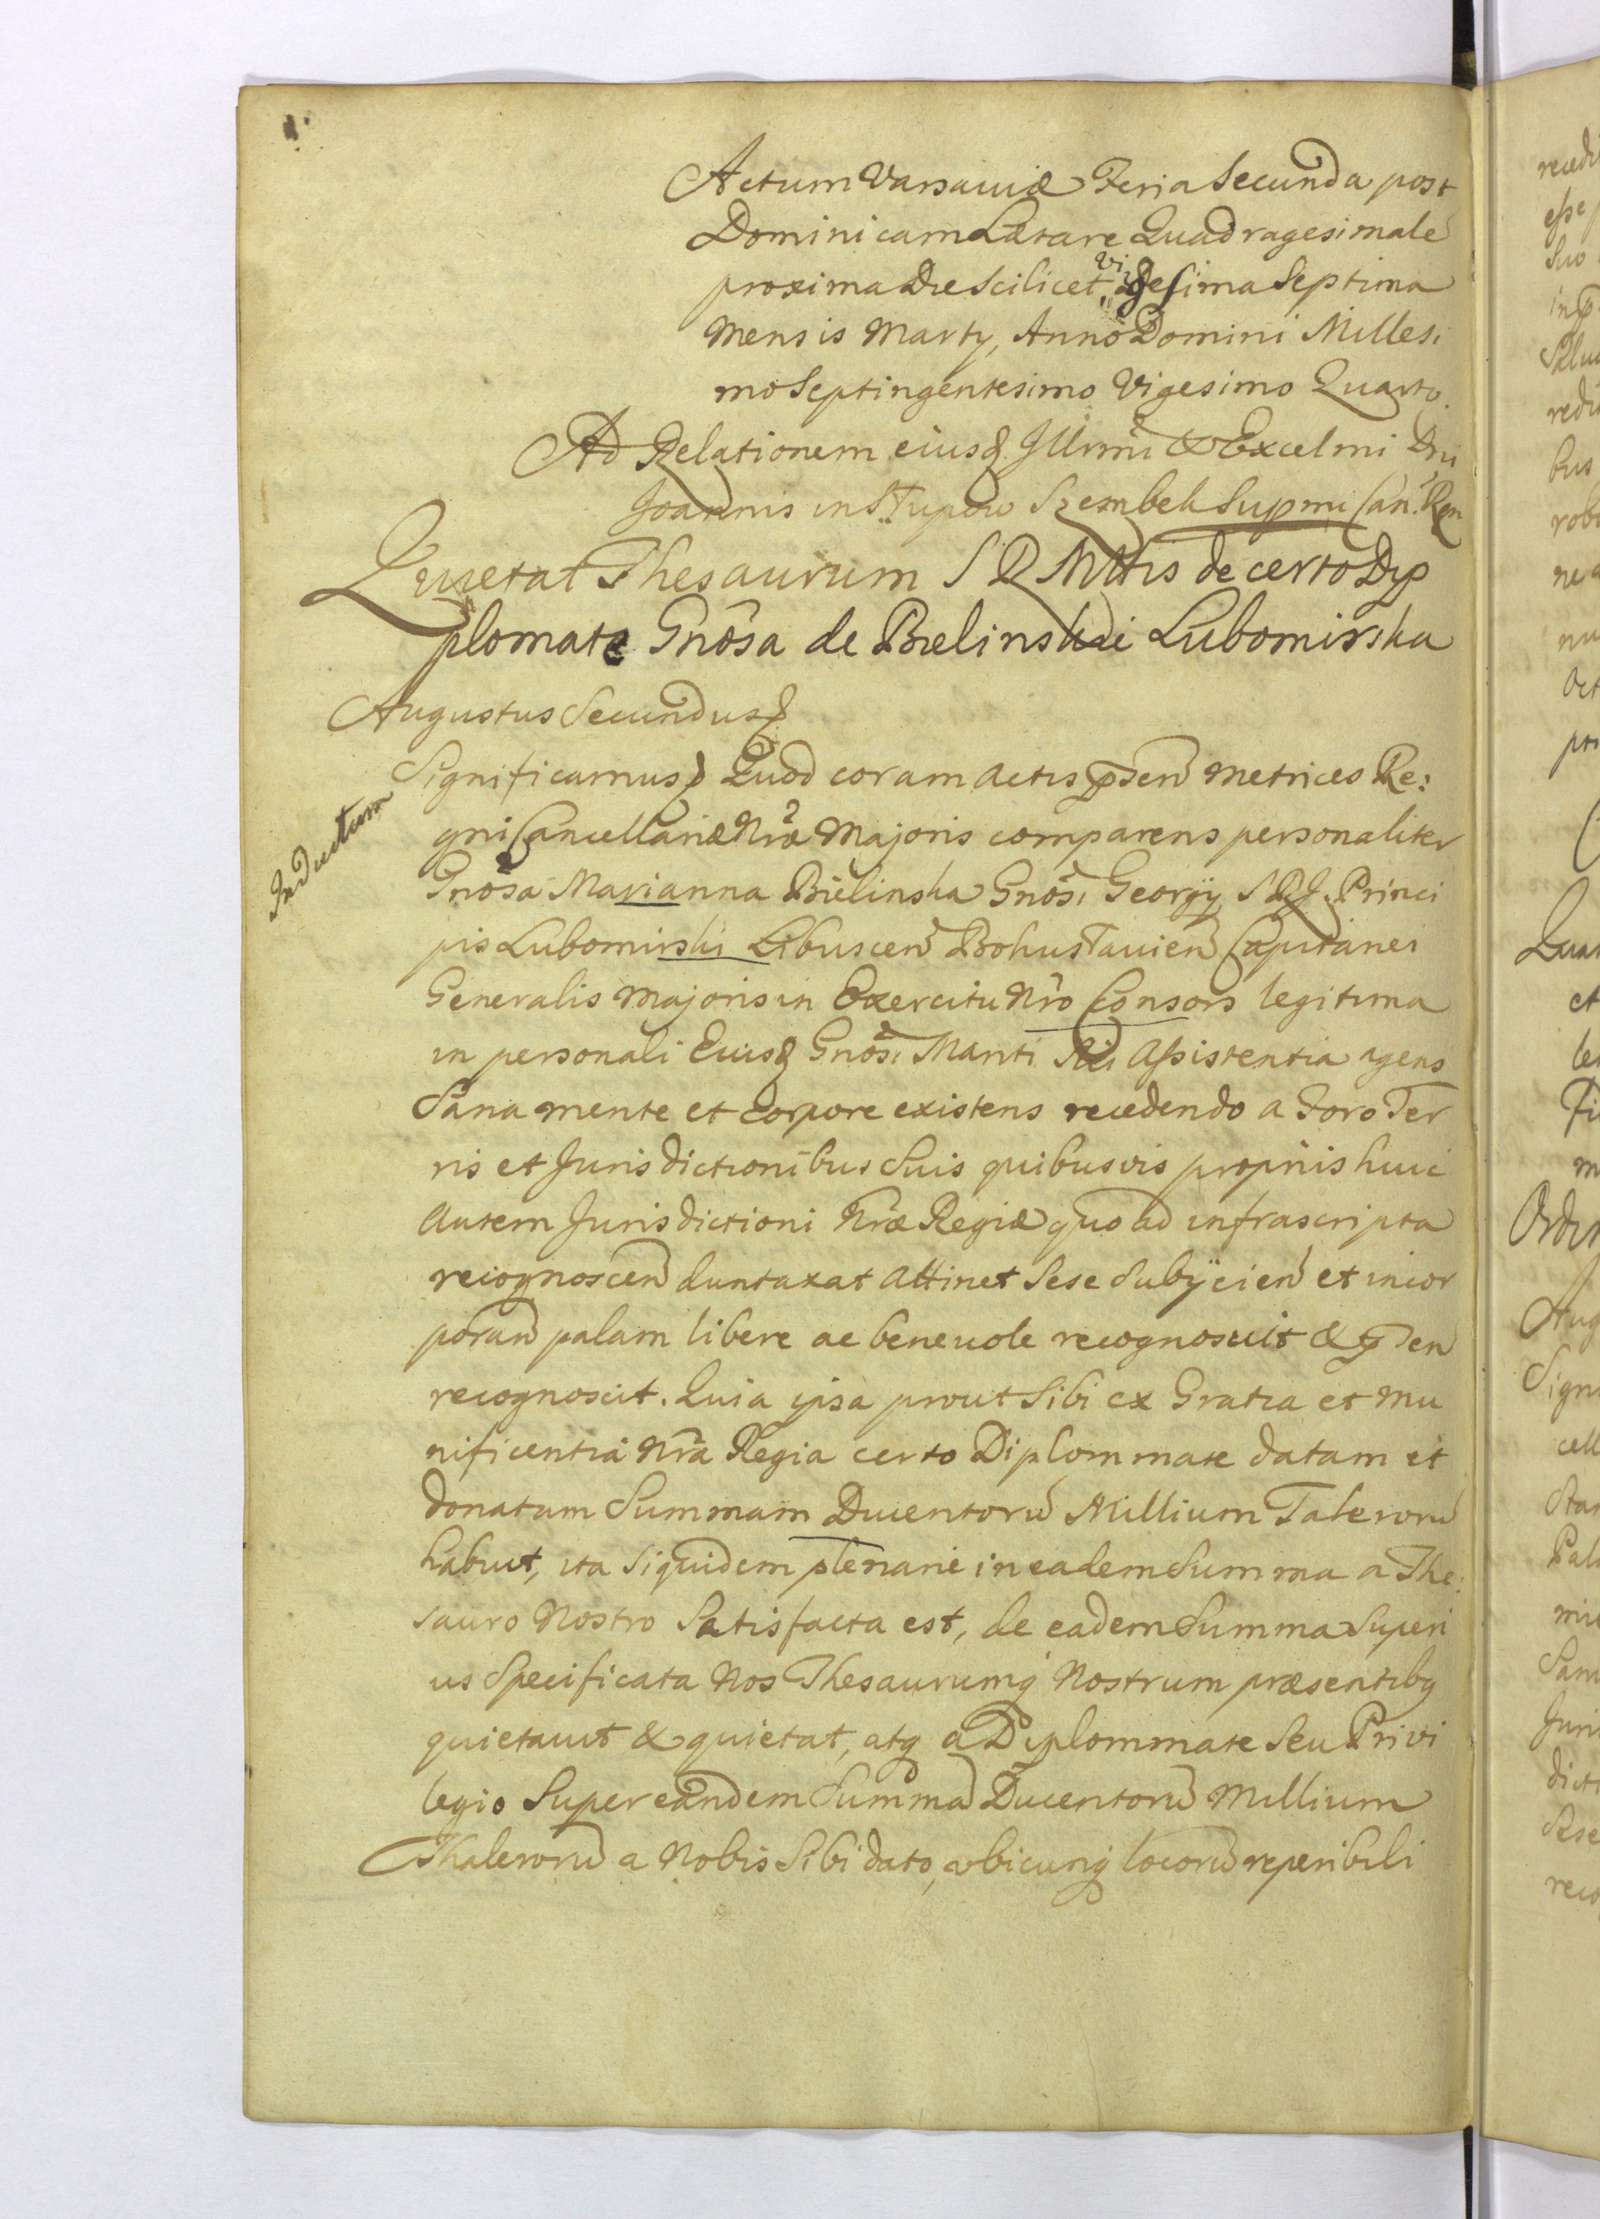 Actum Varsaviæ Feria Secunda post
Dominicam Lætare Quadragesimale
proxima Die Scilicet Vigesima Septima
Mensis Marty, Anno Domini Millesi
mo Septingentesimo Vigesimo Quarto.
Ad Relationem eiusd Illrmi & Excelmi Dni
Joannis in Słupow Szembek Supmi Can. Rgn
Quietat Thesaurum S R Mttis de certo Dip
plomate Gnosa de Bielinskie Lubomirska
Augustus Secundus
Significamus Quod coram Actis psen Metrices Re:
gni Cancellariæ Nræ Majoris comparens personaliter
Inductum
Gnosa Marianna Bielinska Gnosi Georgij S R J Princi
pis Lubomirski Libuscen Bohuslavien Capitanei
Generalis Majoris in Exercitu Nro Consors legitima
in personali Eiusd Gnosi Mariti Sui Assistentia agens
Sana mente et corpore existens recedendo a Foro Ter
ris et Jurisdictionibus Suis quibusvis proprijs huic
autem Jurisdictioni Nræ Regiæ quo ad infrascripta
recognoscen duntaxat attinet Sese Subijcien et incor
poran palam libere ac benevole recognovit & psen
recognoscit. Quia ipsa prout Sibi ex Gratia et Mu
nificentia Nra Regia certo Diplommate datam et
donatam Summam Ducentoru Millium Taleroru
habuit, ita Siquidem plenarie in eadem Summa a The:
sauro Nostro Satisfacta est, de eadem Summa Superi
us Specificata Nos Thesaurumq Nostrum præsentibq
quietavit & quietat, atq a Diplommate Seu Privi
legio Super eandem Summa Ducentoru Millium
Thaleroru a Nobis Sibi dato, ubicunq locoru reperibili